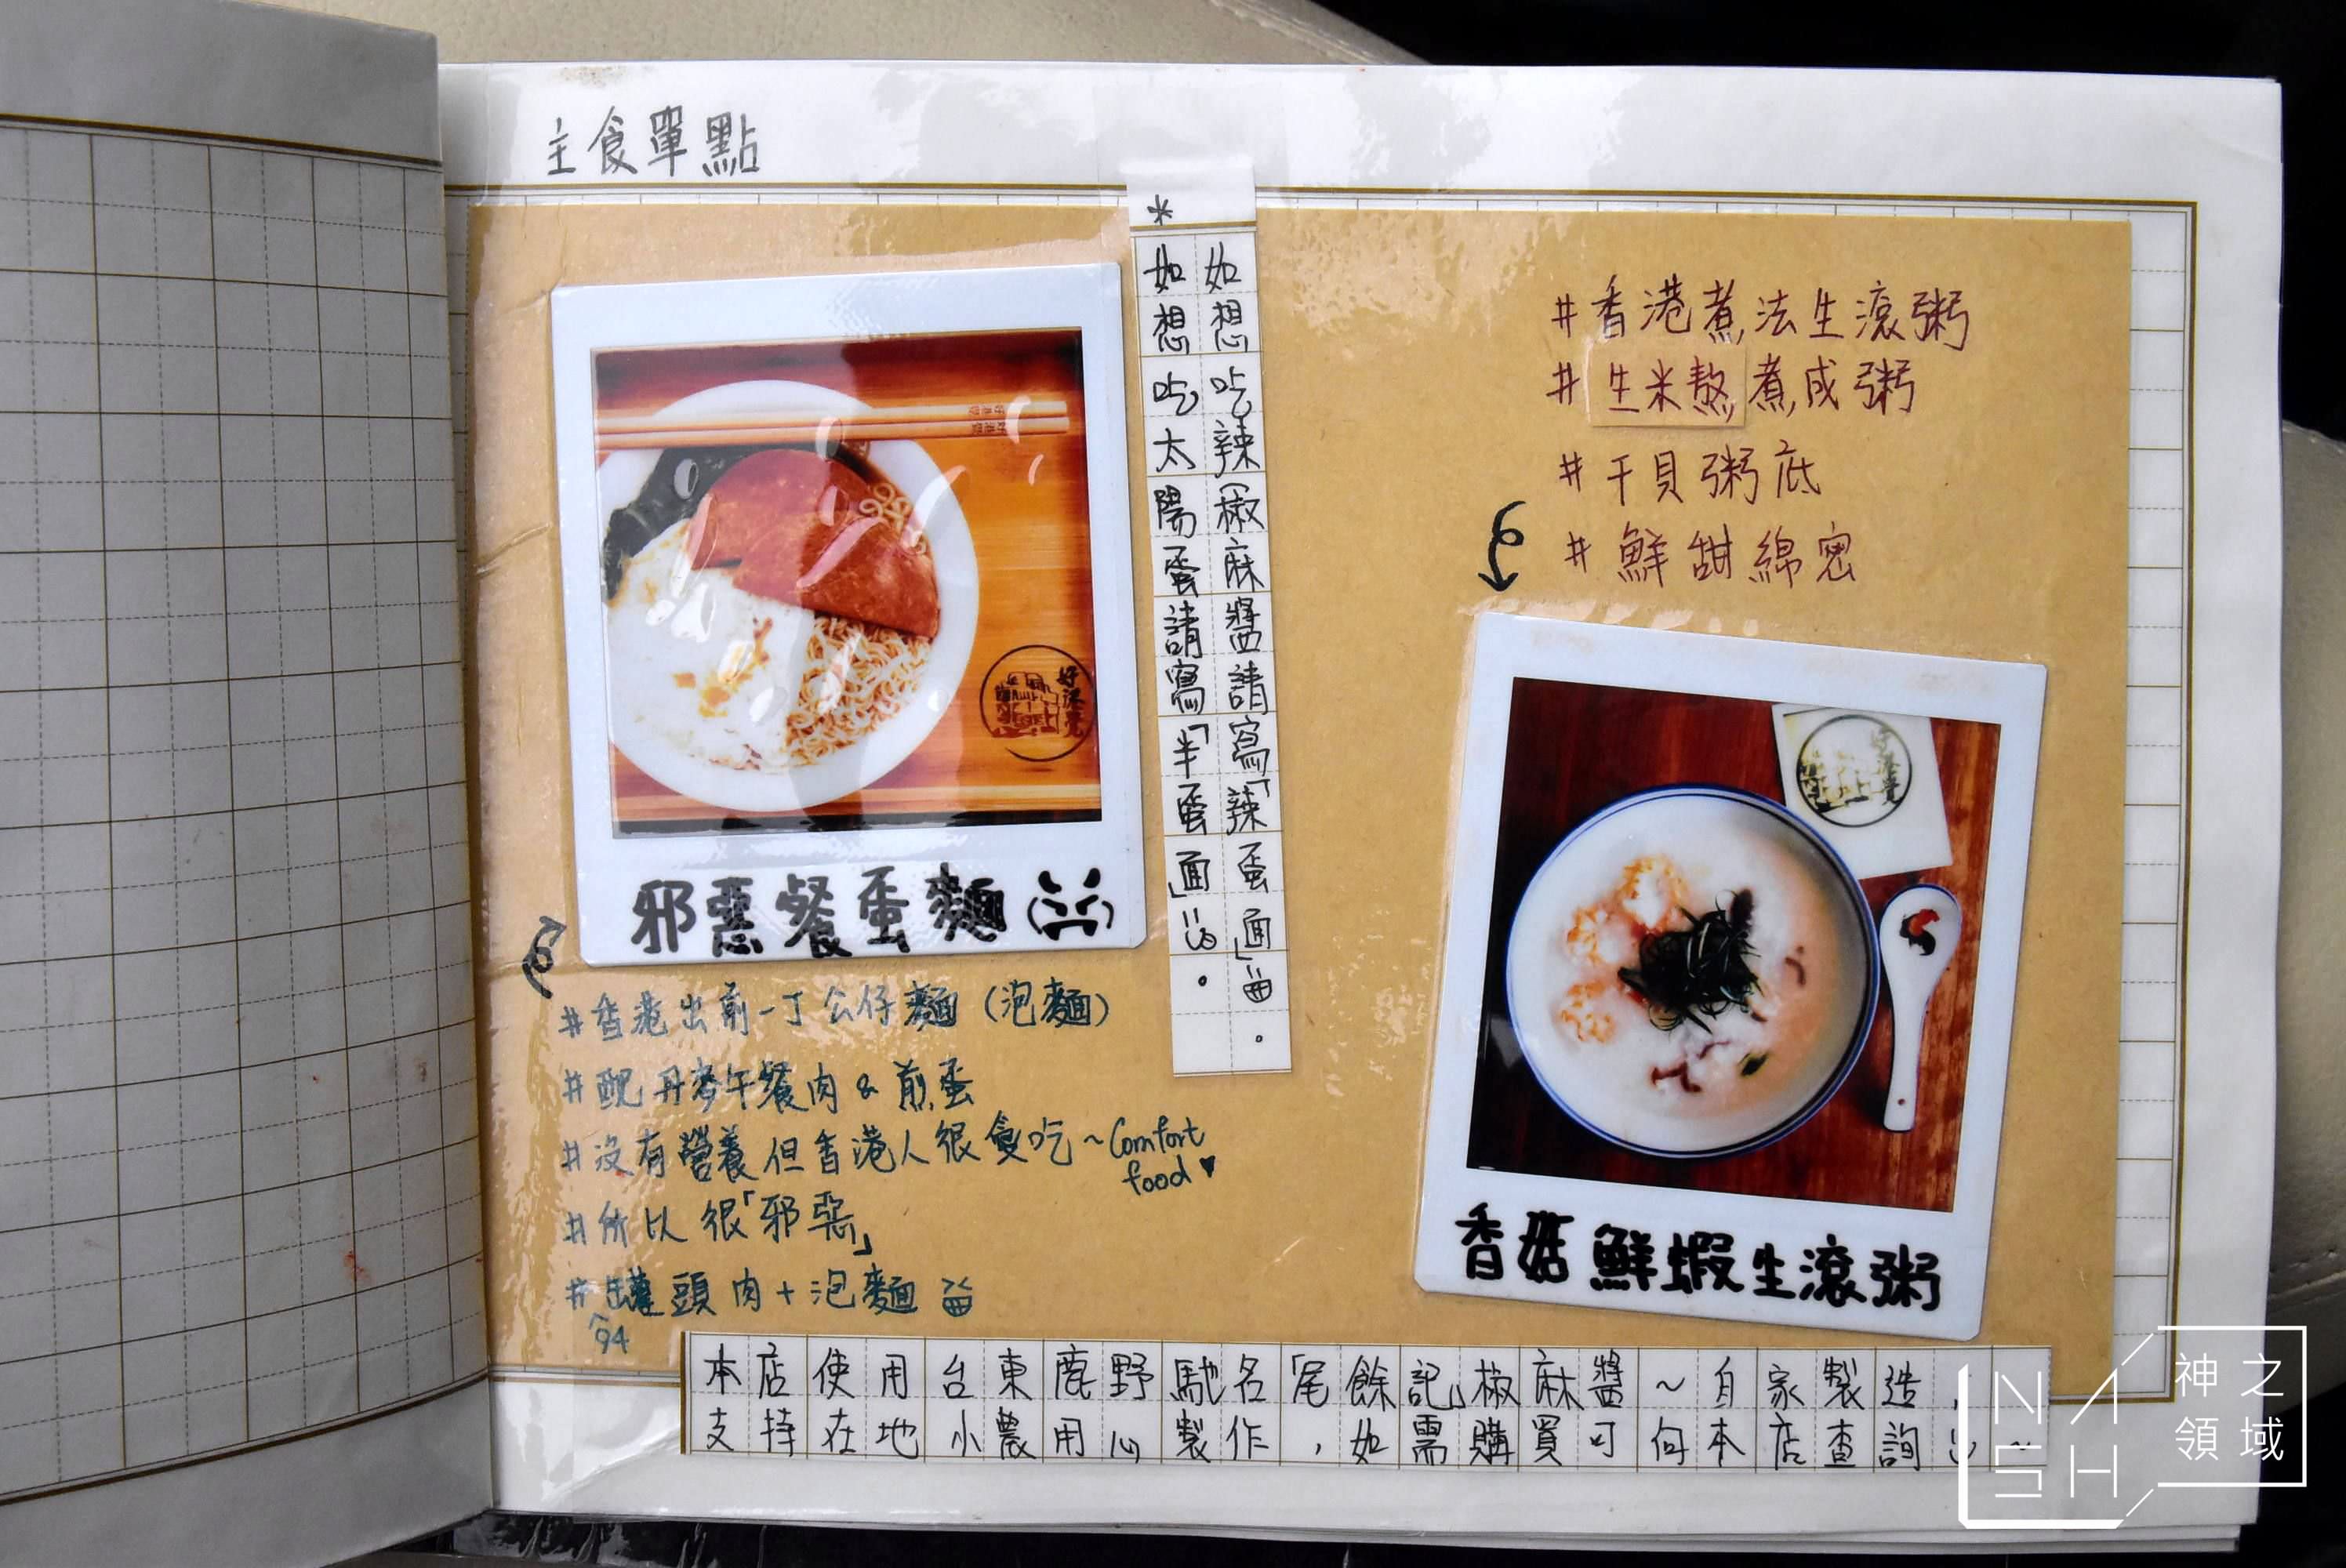 主食單點
邪惡餐蛋麵
#香港出前一丁公仔麵(泡麵)
#配丹麥午餐肉&煎蛋
#沒有營養但香港人很愛吃~Comfort
food♥
#所以很「邪惡」
#罐頭肉+泡麵
^94
*
如想吃辣(椒麻醬請寫「辣蛋面」。
如想吃太陽蛋請寫「半蛋面」。
#香港煮法生滾粥
#生米熬煮成粥
#干貝粥底
#鮮甜綿密
好港覺
香菇鮮蝦生滾粥
本店使用台東鹿野馳名「尾餘記」椒麻醬~自家製造,
支持在地小農用心製作,如需購買可向本店查詢
NASH
神之
領域